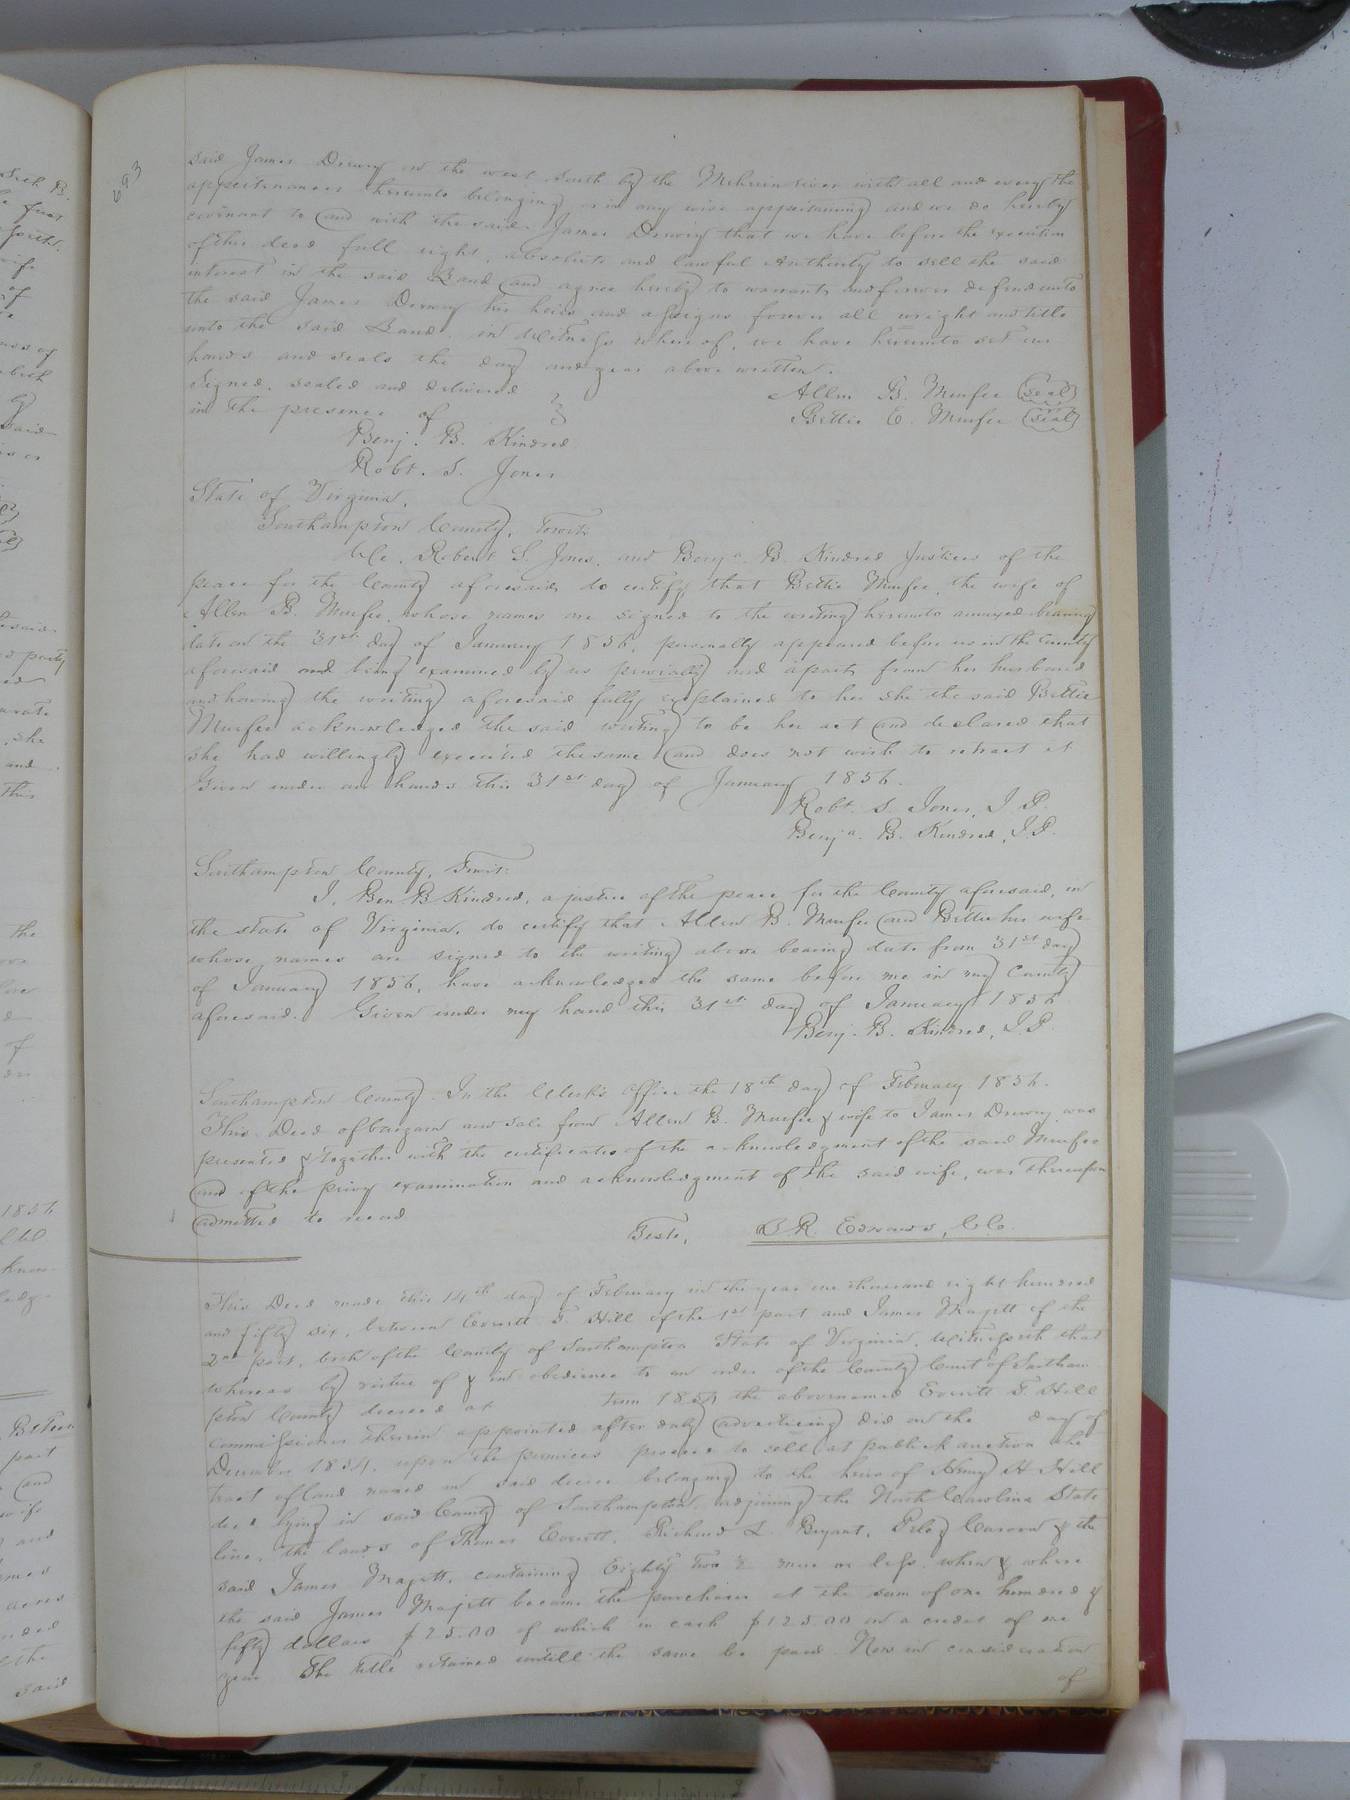 693
said James Drewry on the west South by the Meherrin river with all and every the
appertenances thereunto belonging or in any wise appertaining and we do hereby
covenant to and with the said James Drewry that we have before the execution
of this deed full right, absolute and lawful Authority to sell the said
interest in the said Land and agree hereby to warrant and forever defend unto
the said James Drewry his heirs and assigns forever all wright and title
unto the said Land. in Witness whereof, we have hereunto set our
hands and seals the day and year above written.
Signed, sealed and delivered
Allen B. Murfee (seal)
in the presence of
Bettie E. Murfee (seal)
Benj. B. Kindred
Robt. S. Jones
State of Virginia,
Southampton County, Towit:
We, Robert S. Jones, and Benja. B. Kindred Justices of the
peace for the County aforesaid, do certify that Bettie Murfee, the wife of
Allen B. Murfee, whose names are signed to the writing hereunto annexed bearing
date on the 31st day of January 1856, personally appeared before us in the County
aforesaid and being examined by us privially and apart from her husband
and having the writing aforesaid fully explained to her she the said Bettie
Murfee acknowledged the said writing to be her act and declared that
she had willingly executed the same and does not wish to retract it
Given under our hands this 31st day of January 1856.
Robt. S. Jones, J.P.
Benja. B. Kindred, J.P.
Southampton County, Towit:
I, Ben B Kindred, a justice of the peace for the County aforesaid, in
the state of Virginia, do certify that Allen B. Murfee and Bettie his wife
whose names are signed to the writing above bearing date from 31st day
of January 1856, have acknowledged the same before me in my County
aforesaid. Given under my hand this 31st day of January 1856
Benj. B. Kindred, J.P.
Southampton County. In the Clerk's Office the 18th day of February 1856.
This Deed of bargain and sale from Allen B. Murfee & wife to James Drewry was
presented & together with the certificates of the acknowledgment of the said Murfee
and of the privy examination and acknowledgment of the said wife, was thereupon
admitted to record
Teste, L R. Edwards, Clc.
This Deed made this 14th day of February in the year one thousand eight hundred
and fifty six, between Everett T. Hill of the 1st part and James Majett of the
2nd part, both of the County of Southampton State of Virginia, Witnesseth that
whereas by virtue of & in obedience to an order of the County Court of Southam
pton County decreed at term 1854 the abovenamed Everett T Hill
commissioner therein appointed after duly advertising did on the day of
December 1854, upon the premices proceed to sell at publick auction the
tract of land named in said decree belonging to the heirs of Henry H Hill
decd lying in said County of Southampton, adjoining the North Carolina State
line, the lands of Thomas Everett, Richard L. Bryant, & the
said James Majett, containing Eighty two more or less. when & where
the said James Majett became the purchaser at the sum of one hundred &
fifty dollars $25.00 of which in cash $125.00 on a credit of one
year The title retained untill the same be paid. Now in consideration
of